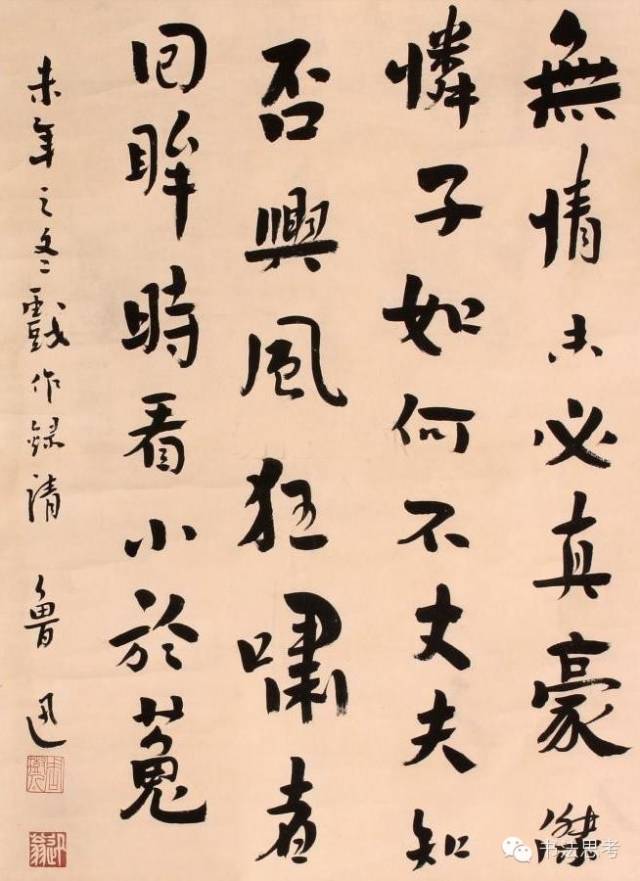 無情未必真豪傑
憐子如何不丈夫知
否興風狂嘯者
回眸時看小於菟
未年之冬戲作錄請 魯迅
书法思考